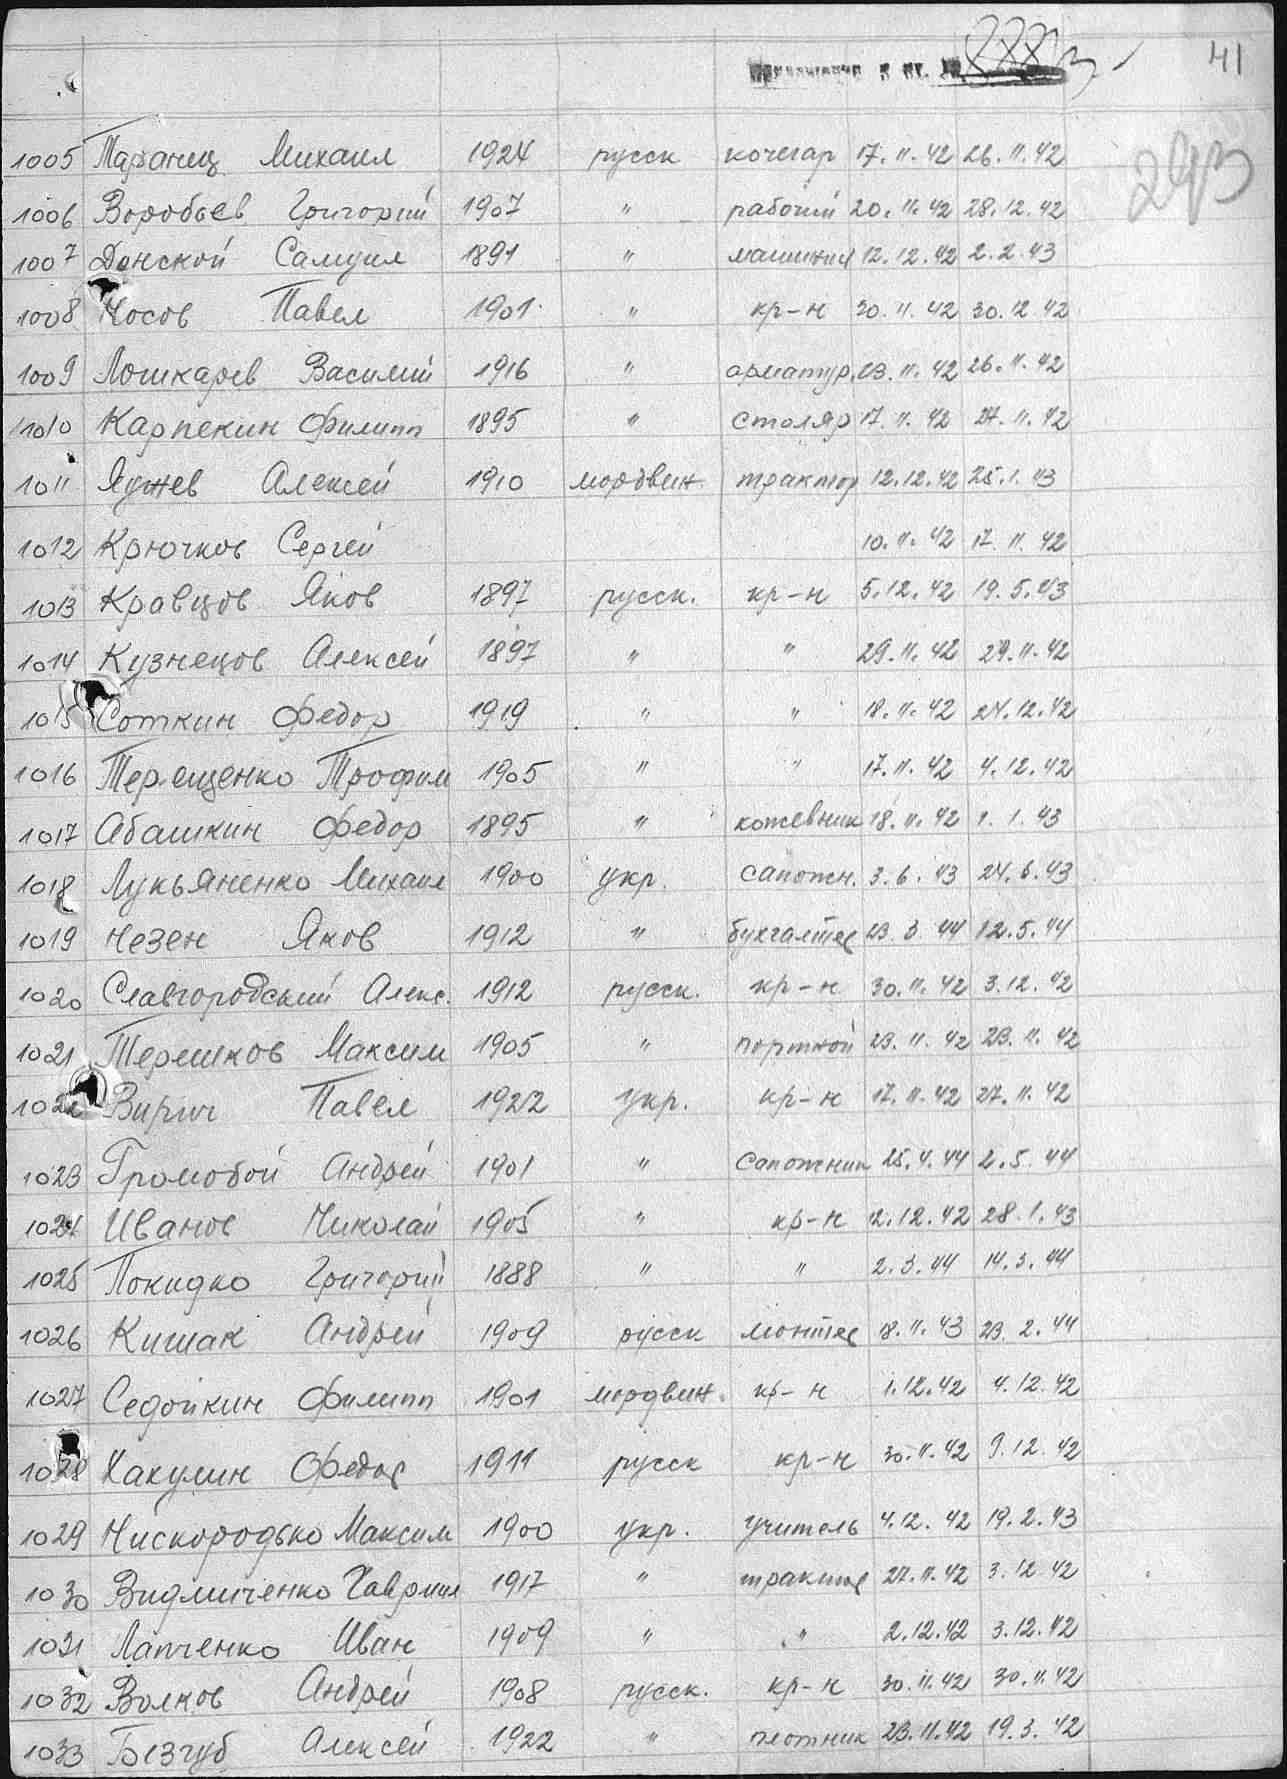 41
293
1005 Таранец Михаил 1924 русск кочегар 17.11.42 26.11.42
1006 Воробьев Григорий 1907 " рабочий 20.11.42 28.12.42
1007 Донской Самуил 1891 " машинист 12.12.42 2.2.43
1008 Носов Павел 1901 " кр-н 30.11.42 30.12.42
1009 Лошкарев Василий 1916 " арматур. 23.11.42 26.11.42
1010 Карпекин Филипп 1895 " столяр 17.11.42 27.11.42
1011 Яушев Алексей 1910 мордвин. трактор 12.12.42 25.1.43
1012 Крючков Сергей 10.11.42 17.11.42
1013 Кравцов Яков 1897 русск. кр-н 5.12.42 19.5.43
1014 Кузнецов Алексей 1897 " " 29.11.42 29.11.42
1015 Соткин Федор 1919 " " 18.11.42 24.12.42
1016 Терещенко Трофим 1905 " " 17.11.42 4.12.42
1017 Абашкин Федор 1895 " кожевник 18.11.42 1.1.43
1018 Лукьяненко Михаил 1900 укр. сапожн. 3.6.43 24.6.43
1019 Незен Яков 1912 " бухгалтер 23.3.44 12.5.44
1020 Славгородский Алекс. 1912 русск. кр-н 30.11.42 3.12.42
1021 Терешков Максим 1905 " портной 23.11.42 23.11.42
1022 Вирич Павел 1922 укр. кр-н 17.11.42 27.11.42
1023 Громобой Андрей 1901 " сапожник 25.4.44 2.5.44
1024 Иванов Николай 1905 " кр-н 12.12.42 28.1.43
1025 Покидко Григорий 1888 " " 2.3.44 14.3.44
1026 Кишак Андрей 1909 русск монтер 18.11.43 23.2.44
1027 Седойкин Филипп 1901 мордвин. кр-н 1.12.42 4.12.42
1028 Хакулин Федор 1911 русск кр-н 30.11.42 9.12.42
1029 Нискородько Максим 1900 укр. учитель 4.12.42 19.2.43
1030 Видмиченко Гавриил 1917 " трактор 27.11.42 3.12.42
1031 Лапченко Иван 1909 " " 2.12.42 3.12.42
1032 Волков Андрей 1908 русск. кр-н 30.11.42 30.11.42
1033 Беззуб Алексей 1922 " плотник 23.11.42 19.3.42